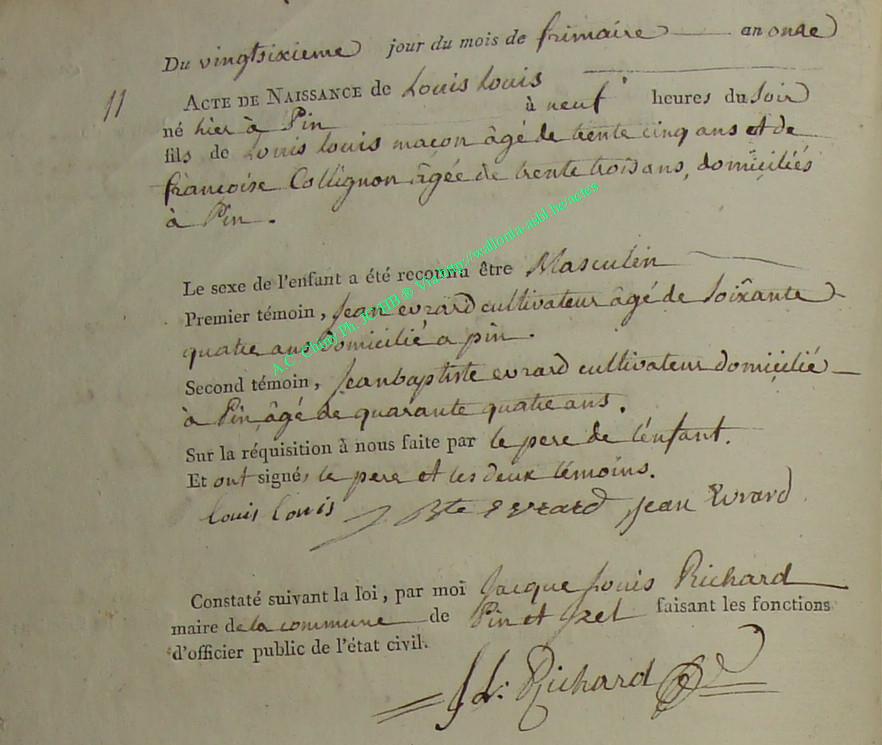 Du vingtsixieme jour du mois de frimaire an onze
11
ACTE DE NAISSANCE de Louis Louis
né hier à Pin à neuf heures du soir
fils de Louis Louis maçon âgé de trente cinq ans et de
françoise Collignon âgée de trente trois ans, domiciliés
à Pin.
Le sexe de l'enfant a été reconnu être Masculin
Premier témoin, Jean evrard cultivateur âgé de soixante
quatre ans domicilié a pin.
Second témoin, Jeanbaptiste evrard cultivateur domicilié
à Pin, âgé de quarante quatre ans.
Sur la réquisition à nous faite par le pere de l'enfant.
Et ont signé, le pere et les deux témoins.
louis louis J Bte Evrard Jean Evrard
Constaté suivant la loi, par moi Jacque Louis Richard
maire de la commune de Pin et Izel faisant les fonctions
d'officier public de l'état civil.
J L: Richard
A.C. Chiny Ph. JCHIB ® Via http://wallonia-asbl.be/actes